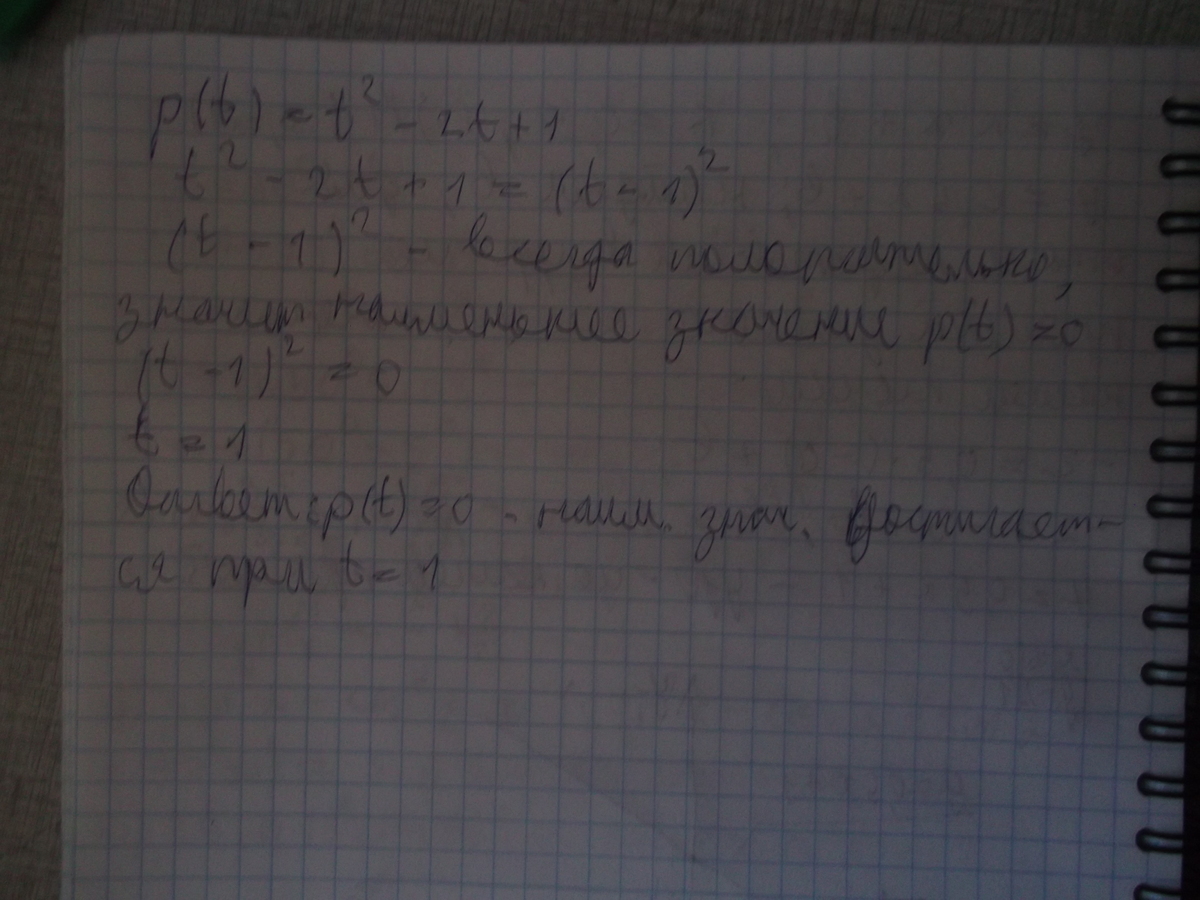 p(t) = t² - 2t + 1
t² - 2t + 1 = (t - 1)²
(t - 1)² - всегда положительно,
значит наименьшее значение p(t) = 0
(t - 1)² = 0
t = 1
Ответ: p(t) = 0 - наим. знач. Достигает-
ся при t = 1